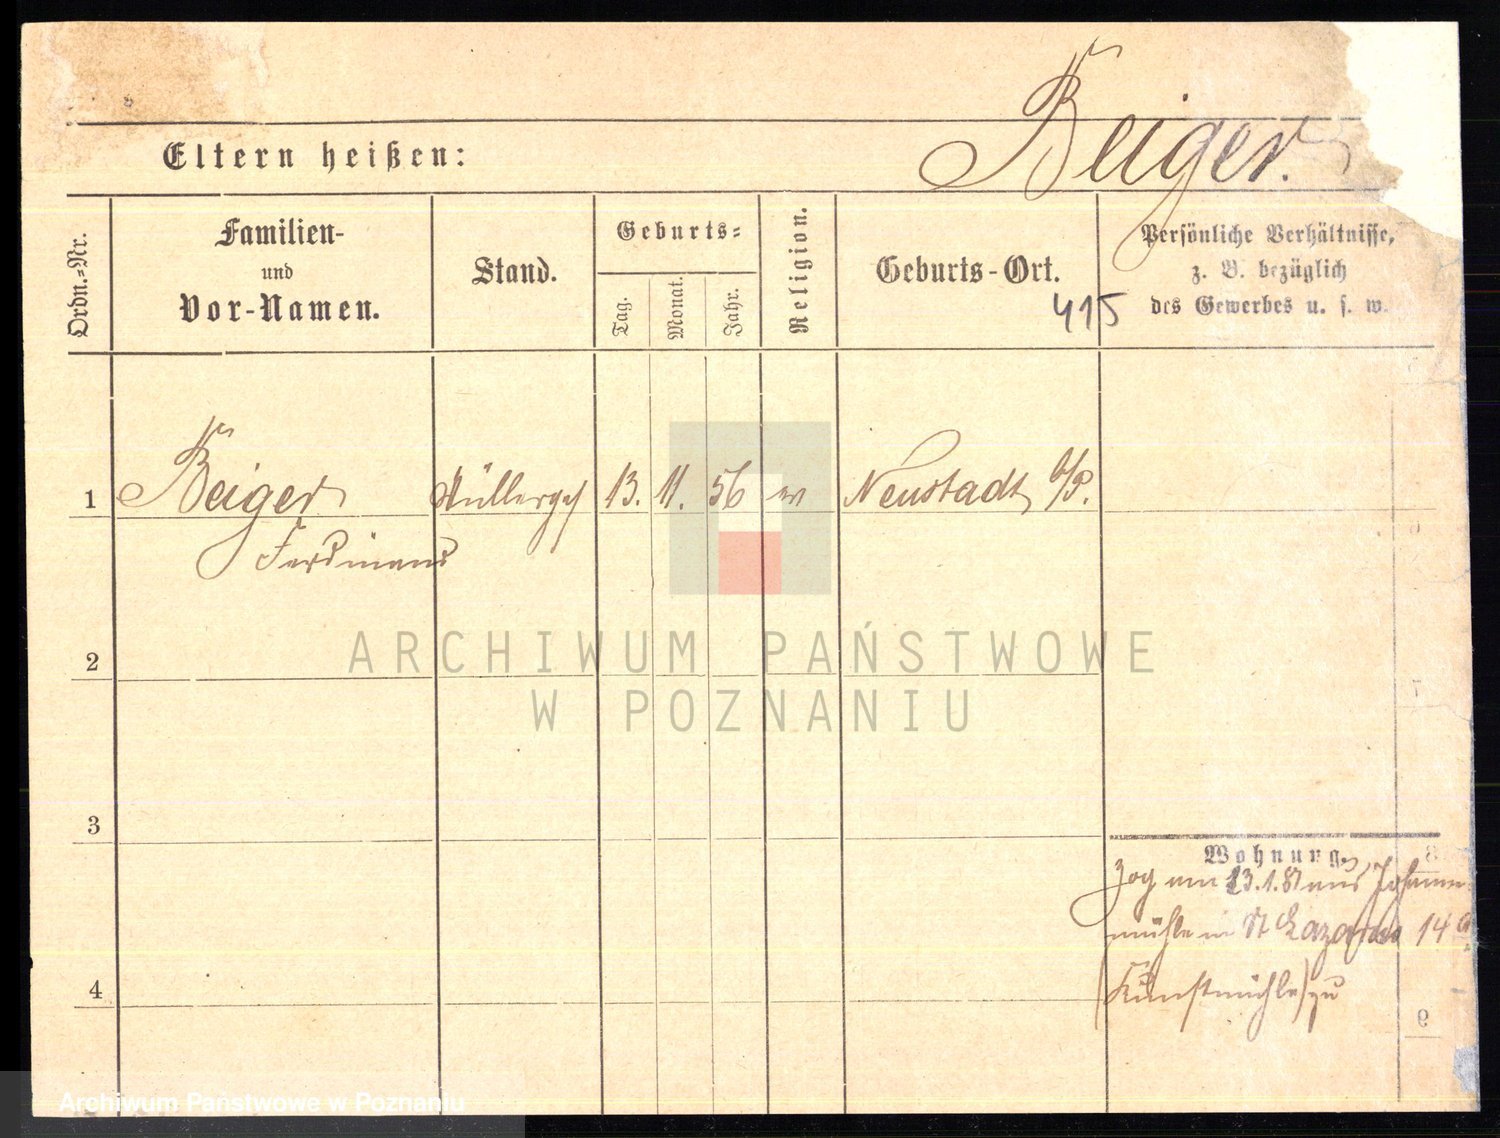 Beiger.
Eltern heißen:
Ordn.=Nr.
Familien-
und
Vor-Namen.
Stand.
Geburts=
Tag.
Monat.
Jahr.
Religion.
Geburts-Ort.
415
Persönliche Verhältnisse,
z. B. bezüglich
des Gewerbes u. s. w.
1 Beiger Müllerges 13. 11. 56 ev Neustadt b/P.
Ferdinand
2
ARCHIWUM PAŃSTWOWE
W POZNANIU
3
Wohnung.
zog am 13.1.81 aus Johannis
mühle in St Lazarus 14a
4
(Kunstmühle) zu
9
Archiwum Państwowe w Poznaniu